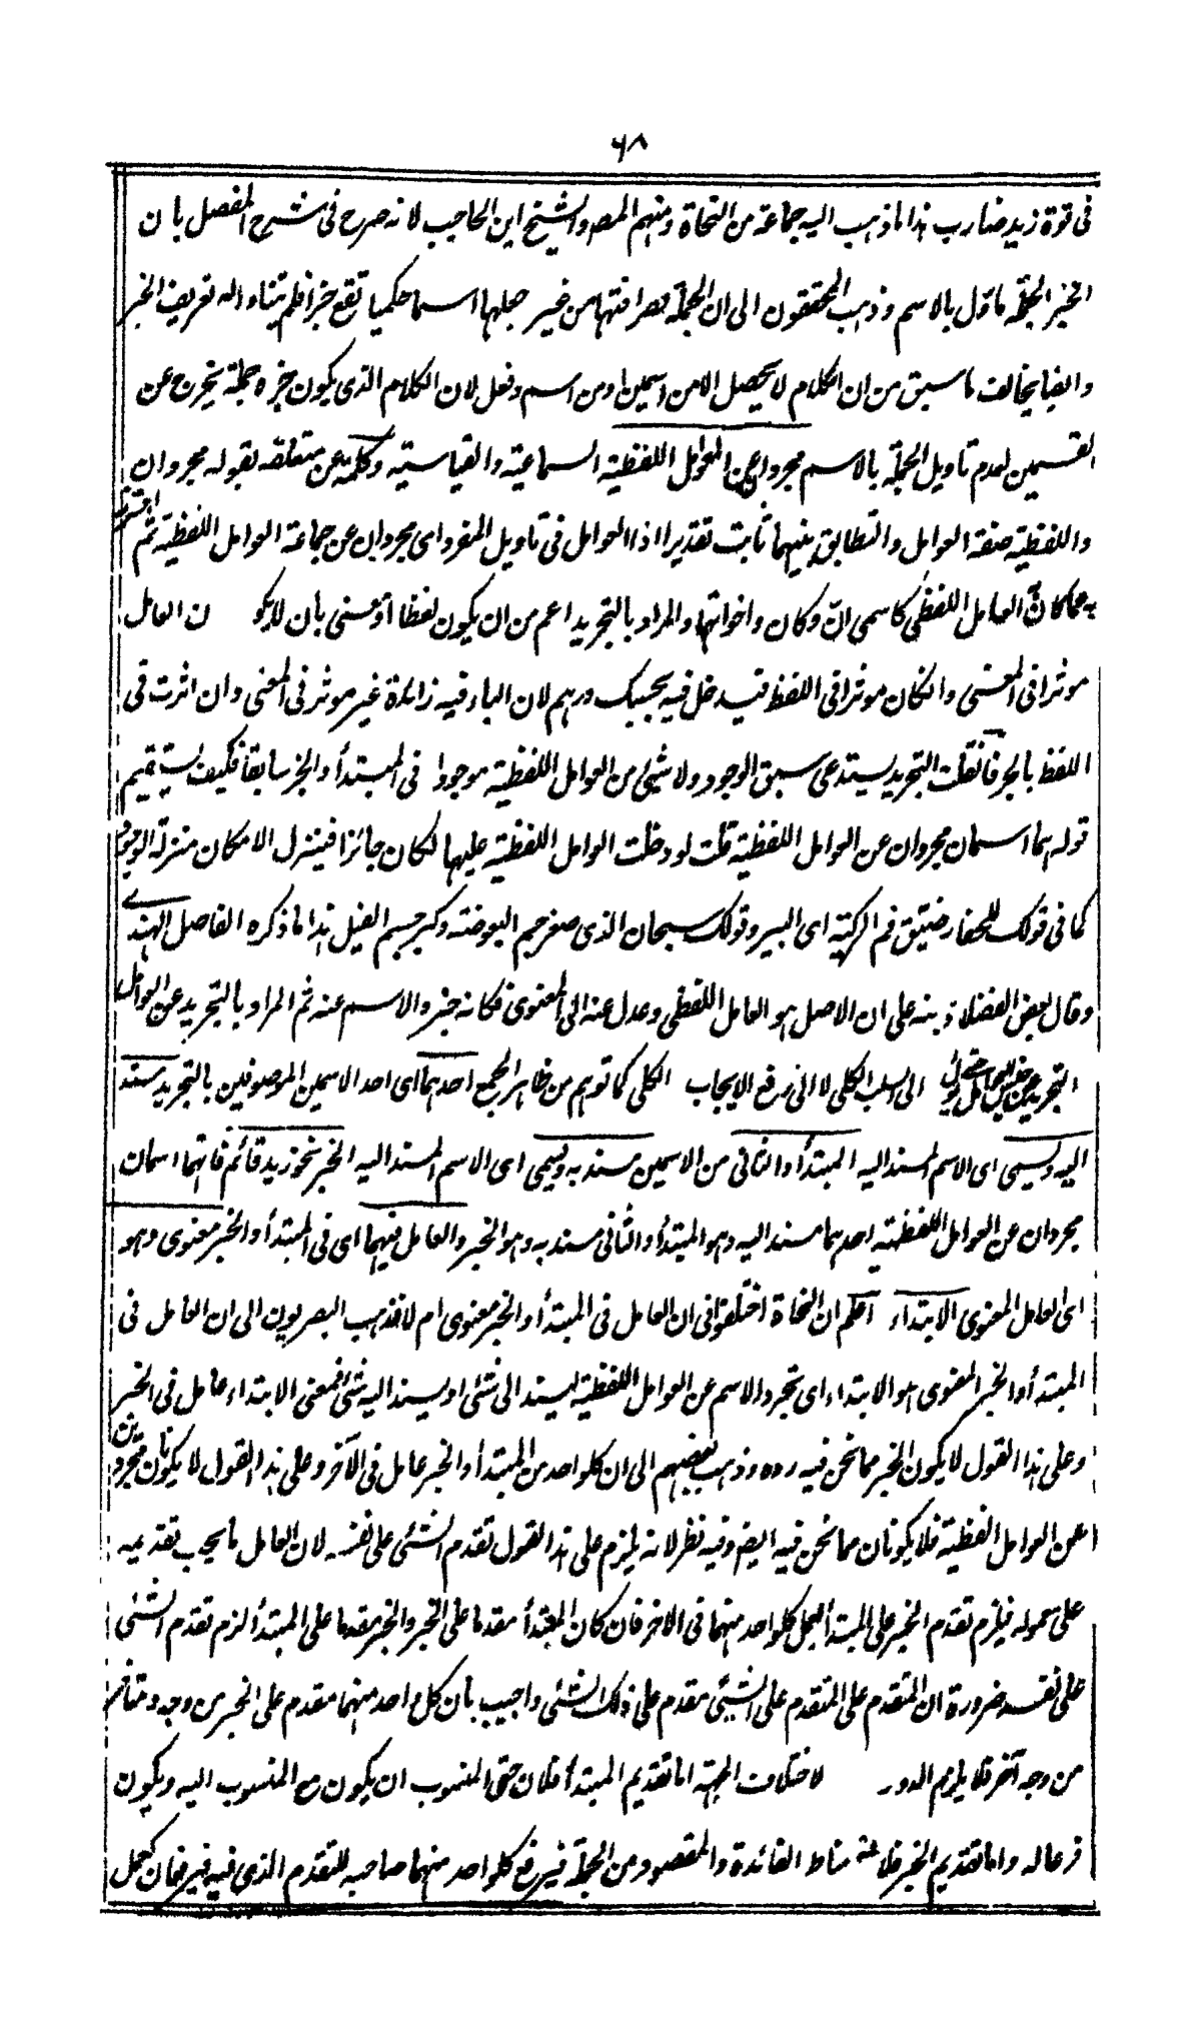 ٦٨
فى قوة زيد ضارب هذا ما ذهب اليه جماعة من النحاة ومنهم المصـ والشيخ ابن الحاجب لانه صرح فى شرح المفصل بان
الخبر الجملة ماوّل بالاسم وذهب المحققون الى ان الجملة بصرافتها من غير جعلها اسما حكميا تقع خبرا فلم يتناوله تعريف الخبر
وايضا يخالف ما سبق من ان الكلام لا يحصل الا من اسمين او من اسم وفعل لان الكلام الذى يكون خبره جملة يخرج عن
القسمين لعدم تاويل الجملة بالاسم مجردان عن العوامل اللفظية السماعية والقياسية وكلمة عن متعلقة بقوله مجردان
واللفظية صفة العوامل والتطابق بينهما ثابت تقديرا اذ العوامل فى تاويل المفرد اى مجردان عن جماعة العوامل اللفظية ثم احترز
به عما كان العامل اللفظى كاسمى انّ وكان واخواتها والمراد بالتجريد اعم من ان يكون لفظا او معنى بان لا يكون العامل
موثرا فى المعنى وان كان موثرا فى اللفظ فيدخل فيه بحسبك درهم لان الباء فيه زائدة غير موثر فى المعنى وان اثرت فى
اللفظ بالجر فان قلت التجريد يستدعى سبق الوجود ولا شئ من العوامل اللفظية موجودا فى المبتدأ والخبر سابقا فكيف يستقيم
قوله هما اسمان مجردان عن العوامل اللفظية قلت لو دخلت العوامل اللفظية عليها لكان جائزا فينزل الامكان منزلة الوجود
كما فى قولك للحفار ضيّق فم الركية اى البير وقولك سبحان الذى صغر جسم البعوضة وكبر جسم الفيل هذا ما ذكره الفاضل الهندى
وقال بعض الفضلاء نبه على ان الاصل هو العامل اللفظى وعدل عنه الى المعنوى فكانه جرد الاسم عنه ثم المراد بالتجريد عن العوامل
التجريد عن جنس العامل حتى يؤل الى السلب الكلى لا الى رفع الايجاب الكلى كما توهم من ظاهر الجمع احدهما اى احد الاسمين الموصوفين بالتجريد مسند
اليه ويسمى اى الاسم المسند اليه المبتدأ والثانى من الاسمين مسند به ويسمى اى الاسم المسند اليه الخبر نحو زيد قائم فانهما اسمان
مجردان عن العوامل اللفظية احدهما مسند اليه وهو المبتدأ والثانى مسند به وهو الخبر والعامل فيهما اى فى المبتدأ والخبر معنوى وهو
اى العامل المعنوى الابتداء اعلم ان النحاة اختلفوا فى ان العامل فى المبتدأ والخبر معنوى ام لا فذهب البصريون الى ان العامل فى
المبتدأ والخبر المعنوى هو الابتداء اى تجرد الاسم عن العوامل اللفظية ليسند الى شئ او يسند اليه شئ فمعنى الابتداء عامل فى الخبر
وعلى هذا القول لا يكون الخبر مما نحن فيه وذهب بعضهم الى ان كلواحد من المبتدأ والخبر عامل فى الآخر وعلى هذا القول لا يكونان مجردين
عن العوامل اللفظية فلا يكونان مما نحن فيه ايضا وفيه نظر لانه يلزم على هذا القول تقدم الشئ على نفسه لان العامل ما يجب تقديمه
على معموله فيلزم تقدم الخبر على المبتدأ لعمل كلواحد منهما فى الاخر فان كان المبتدأ مقدما على الخبر والخبر مقدما على المبتدأ لزم تقدم الشئ
على نفسه ضرورة ان المتقدم على المتقدم على الشئ مقدم على ذلك الشئ واجيب بان كل واحد منهما مقدم على الخبر من وجه ومتاخر
من وجه آخر فلا يلزم الدور لاختلاف الجهة اما تقديم المبتدأ فلان حق المنسوب ان يكون مع المنسوب اليه ويكون
فرعا له واما تقديم الخبر فلانه مناط الفائدة والمقصود من الجملة فيرفع كلواحد منهما صاحبه للتقدم الذى فيه فيرفعان كعمل